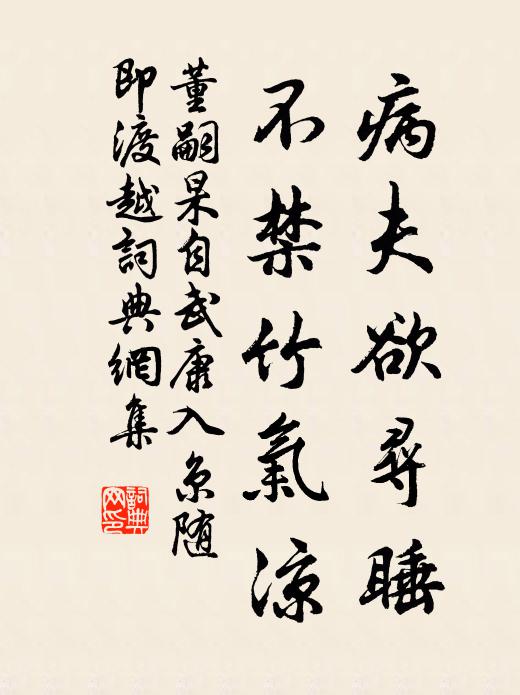 病夫欲尋睡
不禁竹氣涼
董嗣杲自武康入京随
即渡越詞典網集
詞典
网印